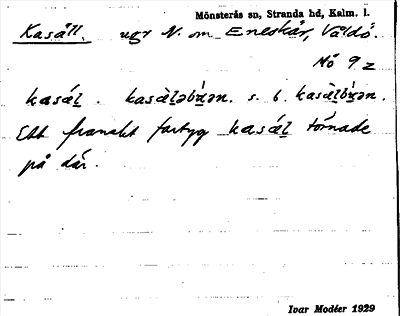 Mönsterås sn, Stranda hd, Kalm. l.
Kasáll. ugr N. om Eneskär, Väldö.
Nö 9 z
kasáḷ. kasàḷəbɷ́ɷən. s. b. kasàḷbɷ́ɷən.
Ett franskt fartyg kasáḷ törnade
på där.
Ivar Modéer 1929